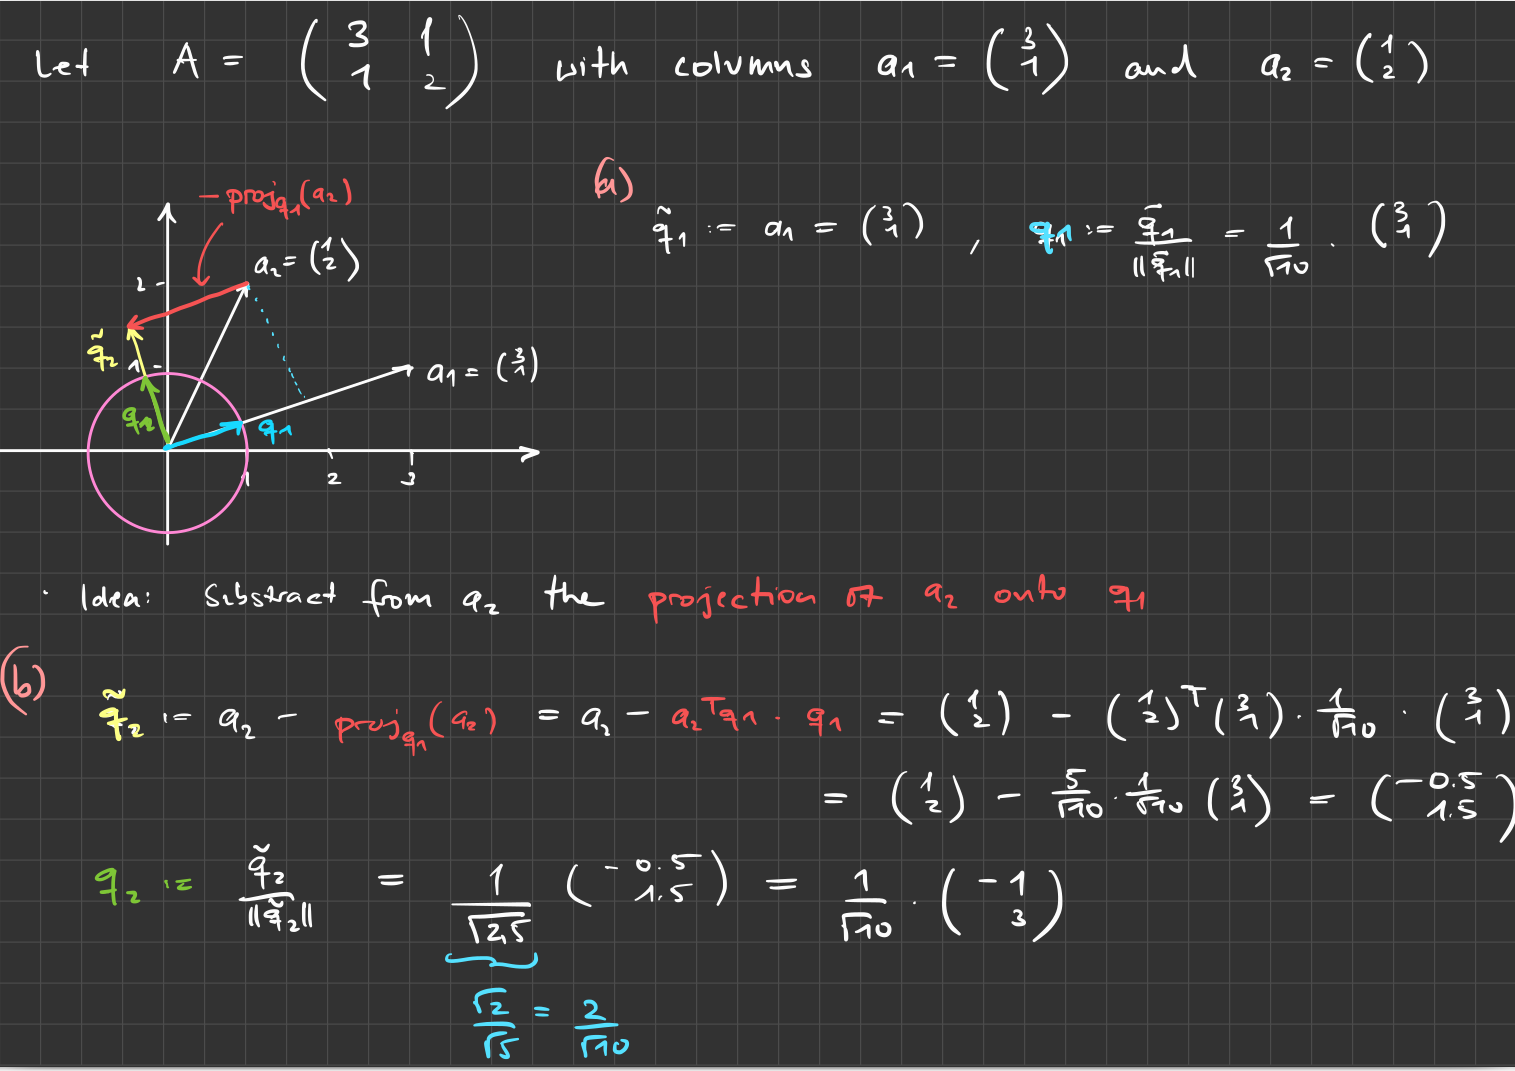 Let A = (3 1 / 1 2) with columns a₁ = (3 / 1) and a₂ = (1 / 2)
(a)
q̃₁ := a₁ = (3 / 1) , q₁ := q̃₁ / ||q̃₁|| = 1/√10 · (3 / 1)
− proj_q₁(a₂)
a₂ = (1 / 2)
2
q̃₂
1
a₁ = (3 / 1)
q₂
q₁
1 2 3
· Idea: Substract from a₂ the projection of a₂ onto q₁
(b)
q̃₂ := a₂ − proj_q₁(a₂) = a₂ − a₂ᵀq₁ · q₁ = (1 / 2) − (1 / 2)ᵀ(3 / 1) · 1/√10 · (3 / 1)
= (1 / 2) − 5/√10 · 1/√10 (3 / 1) = (−0.5 / 1.5)
q₂ := q̃₂ / ||q̃₂|| = 1/√2,5 (−0.5 / 1.5) = 1/√10 · (−1 / 3)
√2/√5 = 2/√10